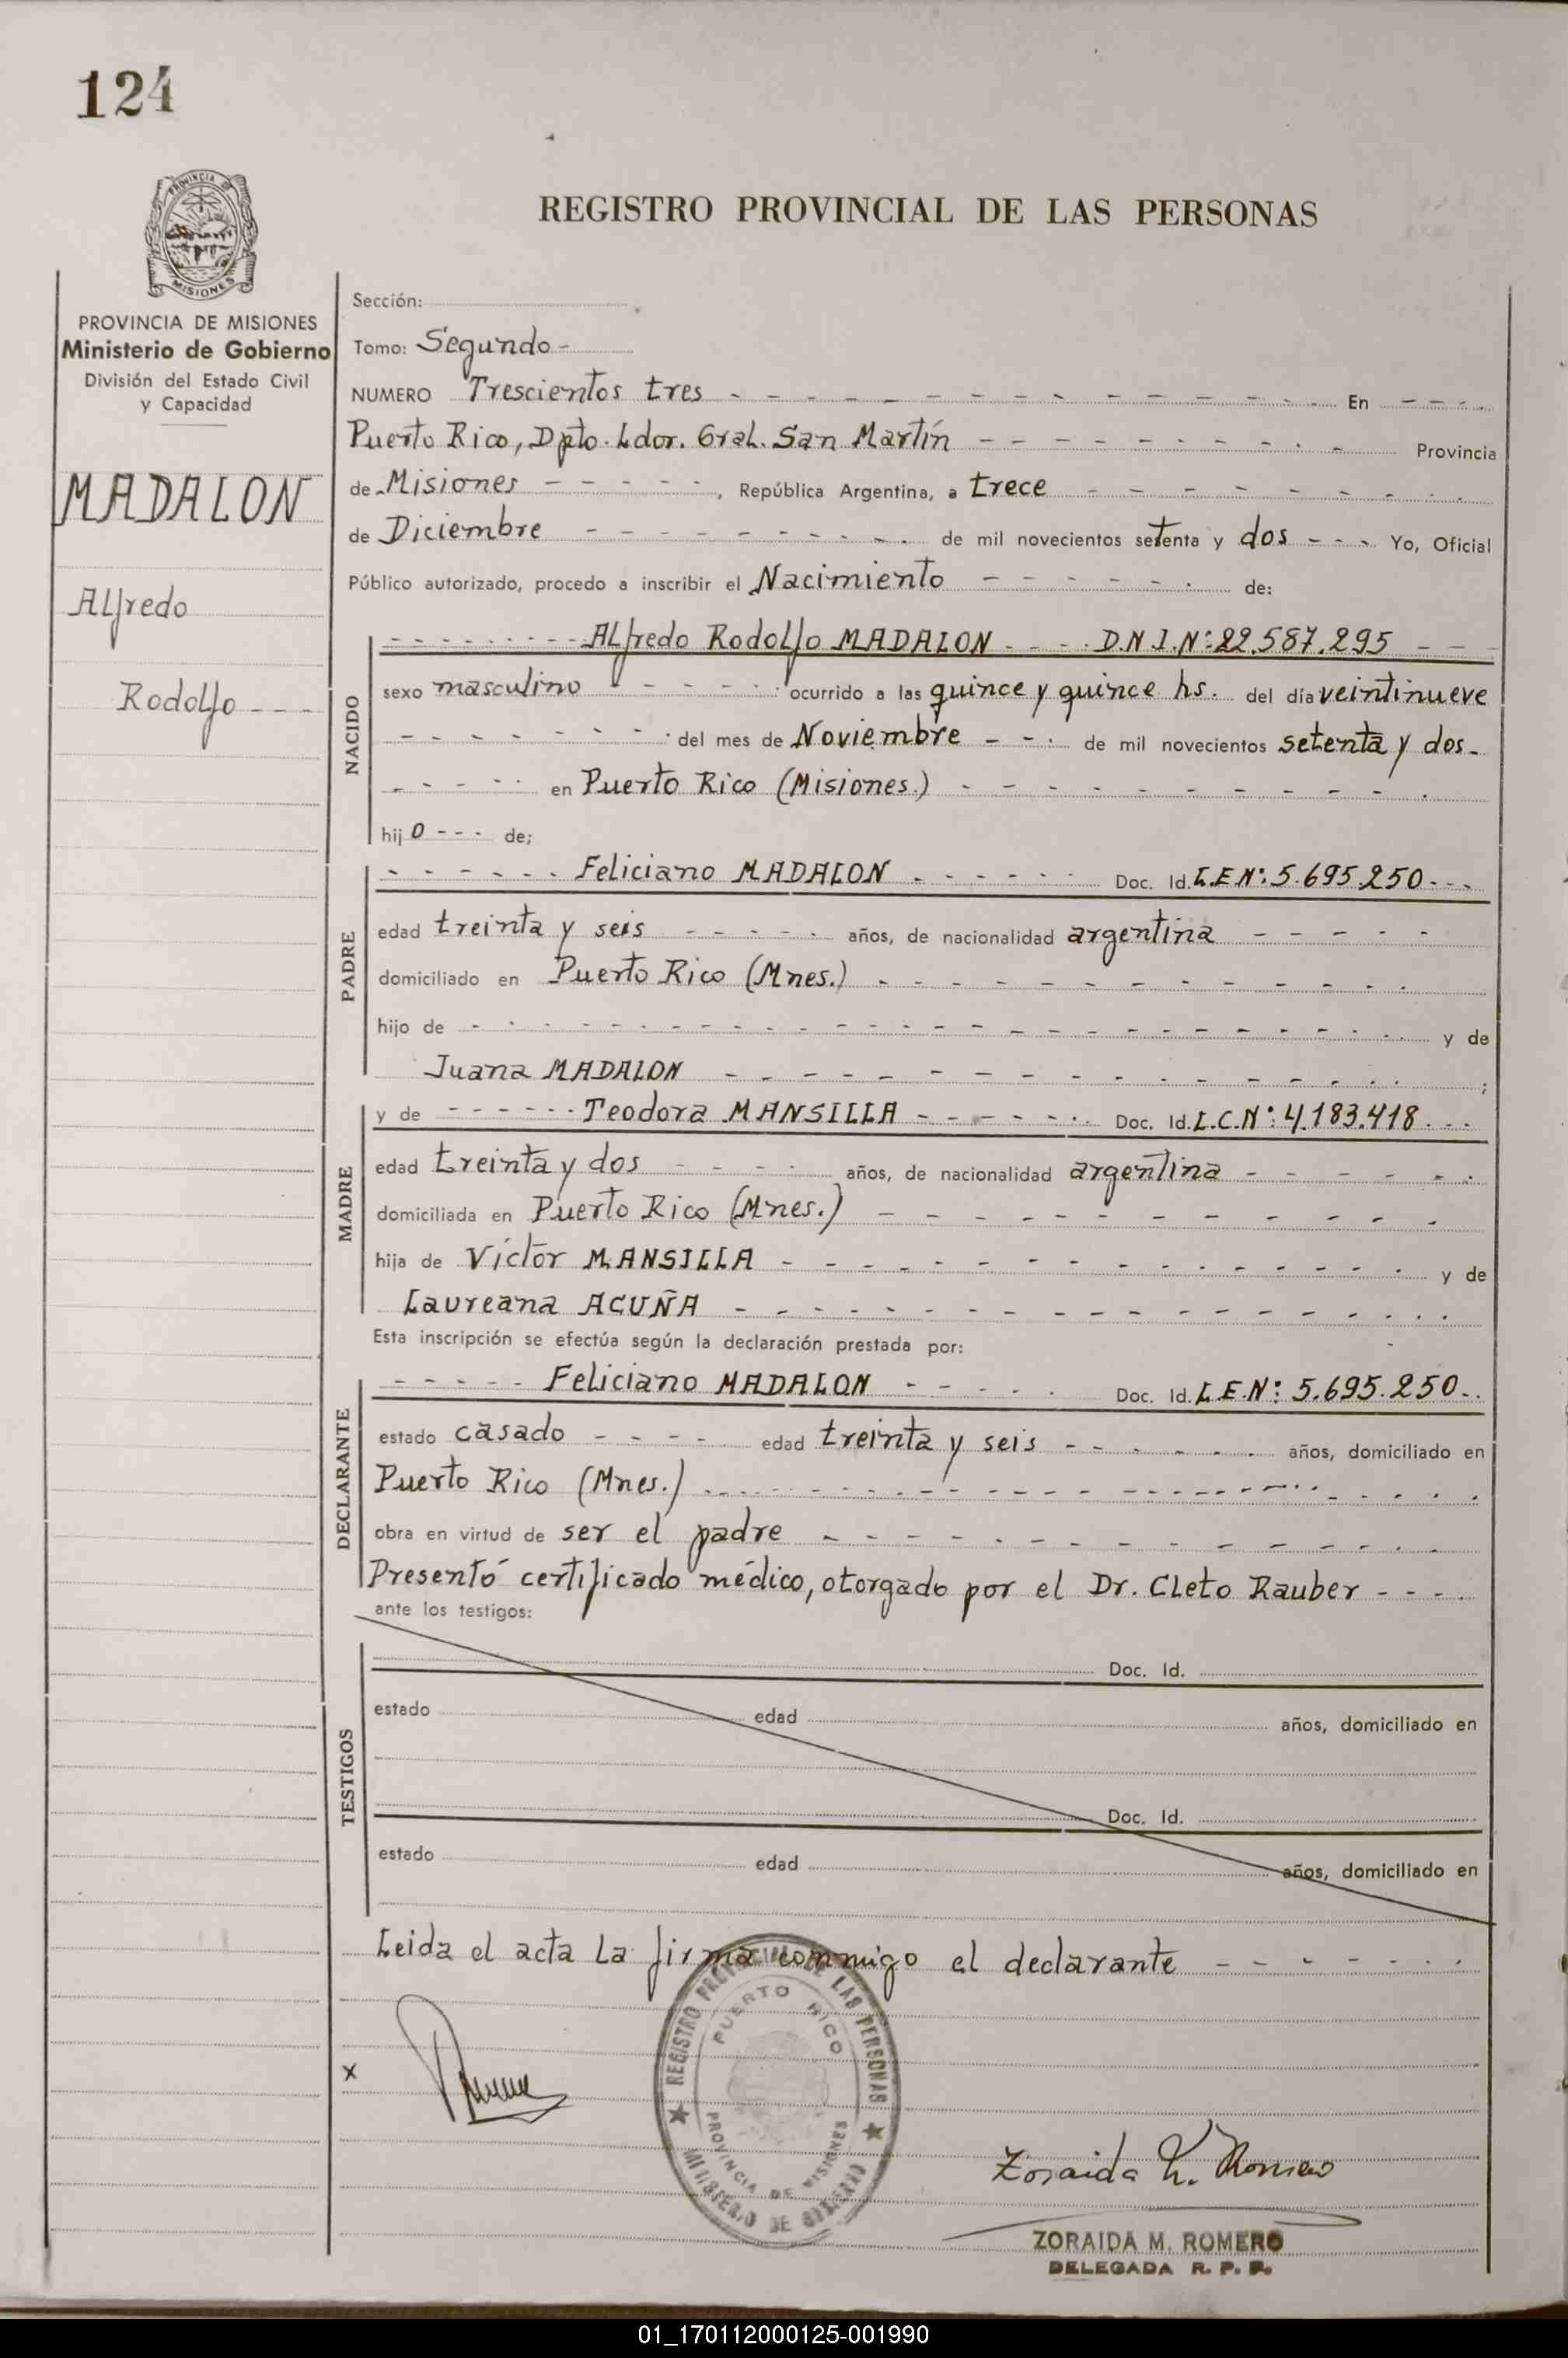 124
PROVINCIA DE
MISIONES
REGISTRO PROVINCIAL DE LAS PERSONAS
PROVINCIA DE MISIONES
Ministerio de Gobierno
División del Estado Civil
y Capacidad
MADALON
Alfredo
Rodolfo - - -
Sección:
Tomo: Segundo -
NUMERO Trescientos tres - - - En - - -
Puerto Rico, Dpto. Ldor. Gral. San Martín - - - Provincia
de Misiones - - -, República Argentina, a trece - - -
de Diciembre - - - de mil novecientos setenta y dos - - - Yo, Oficial
Público autorizado, procedo a inscribir el Nacimiento - - - de:
NACIDO
- - - Alfredo Rodolfo MADALON - - - D.N.I.N°: 22.587.295 - - -
sexo masculino - - - ocurrido a las quince y quince hs. del día veintinueve
- - - del mes de Noviembre - - - de mil novecientos setenta y dos -
- - - en Puerto Rico (Misiones.) - - -
hij o - - - de;
PADRE
- - - Feliciano MADALON - - - Doc. Id. L.E.N°: 5.695.250 - - -
edad treinta y seis - - - años, de nacionalidad argentina - - -
domiciliado en Puerto Rico (Mnes.) - - -
hijo de - - - y de
Juana MADALON - - - ;
MADRE
y de - - - Teodora MANSILLA - - - Doc. Id. L.C.N°: 4.183.418 - - -
edad treinta y dos - - - años, de nacionalidad argentina - - -
domiciliada en Puerto Rico (Mnes.) - - -
hija de Víctor MANSILLA - - - y de
Laureana ACUÑA - - -
Esta inscripción se efectúa según la declaración prestada por:
DECLARANTE
- - - Feliciano MADALON - - - Doc. Id. L.E.N°: 5.695.250 - -
estado casado - - - edad treinta y seis - - - años, domiciliado en
Puerto Rico (Mnes.) - - -
obra en virtud de ser el padre - - -
Presentó certificado médico, otorgado por el Dr. Cleto Rauber - - -
ante los testigos:
TESTIGOS
Doc. Id.
estado edad años, domiciliado en
Doc. Id.
estado edad años, domiciliado en
Leida el acta la firma conmigo el declarante - - -
REGISTRO PROVINCIAL DE LAS PERSONAS
PUERTO RICO
PROVINCIA DE MISIONES
MINISTERIO DE GOBIERNO
x
Zoraida M. Romero
ZORAIDA M. ROMERO
DELEGADA R. P. P.
01_170112000125-001990